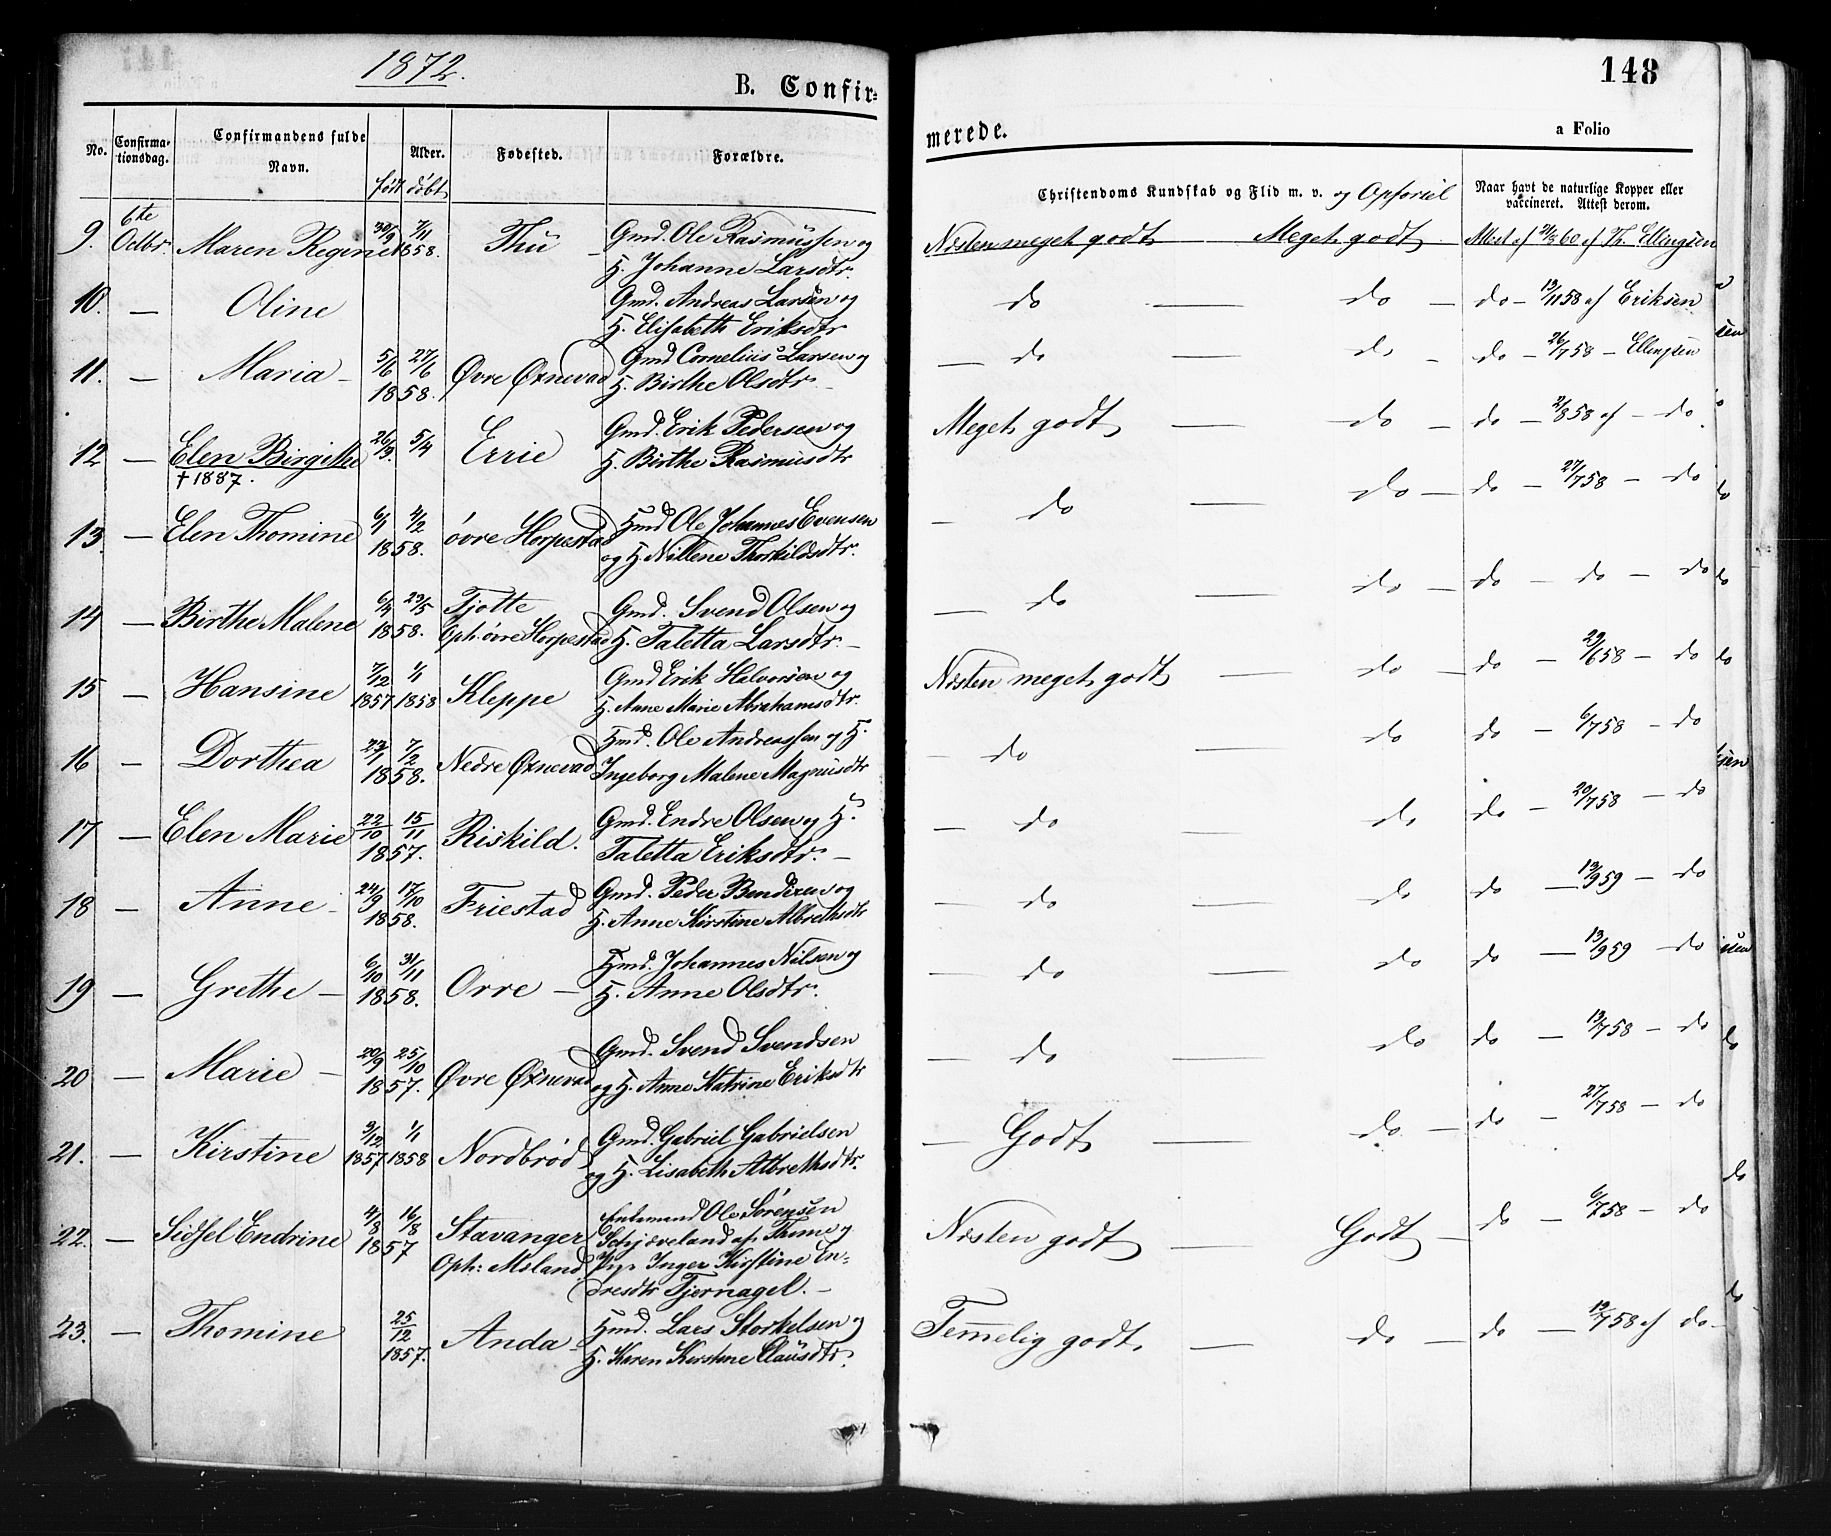 1872.
B. Confir=
No.
Confirma-
tionsdag.
Confirmandens fulde
Navn.
Alder.
født døbt
Fødested.
Forældre.
9. 6te Octbr. Maren Regine 30/9 7/11 1858. Thu Gmd. Ole Rasmussen og
H. Johanne Larsdtr.
10. — Oline Gmd. Andreas Larsen og
H. Elisabeth Eriksdtr
11. — Maria 5/6 27/6 1858. Øvre Øxnevad Gmd Cornelius Larsen og
H. Birthe Olsdtr.
12 — Elen Birgithe 26/3. 5/4 Errie Gmd. Erik Pedersen og
† 1887. H. Birthe Rasmusdtr
13. — Elen Thomine 6/1 4/2 1858. øvre Horpestad Hmd Ole Johannes Evensen
og H. Nillene Thorkildsdtr.
14 — Birthe Malene 6/4 23/5 1858. Tjøtte Gmd. Svend Olsen og
Oph. øvre Horpestad H. Taletta Larsdtr. —
15 — Hansine 7/12 1857 1/1 1858 Kleppe Gmd Erik Halvorsen og
H. Anne Marie Abrahamsdtr.
16 — Dorthea 23/1 7/2 1858. Nedre Øxnevad Hmd. Ole Andreassen og H.
Ingeborg Malene Magnusdtr
17 — Elen Marie 22/10 15/11 1857. Riskild. Gmd. Endre Olsen og H.
Taletta Eriksdtr. —
18 — Anne 24/9 17/10 1858. Friestad Gmd. Peder Bendixen og
H. Anne Kirstine Albrethsdtr
19 — Grethe — 6/10 31/11 1858. Orre — Hmd. Johannes Nilsen og
H. Anne Olsdtr.
20 — Marie — 20/9 25/10 1857. Øvre Øxnevad Gmd. Svend Svendsen
og H. Anne Katrine Eriksdtr
21. — Kirstine 3/12 1857 1/1 1858 Nordbrød Gmd. Gabriel Gabrielsen
og H. Lisabeth Albrethsdtr.
22. — Sidsel Endrine 4/8 16/8 1857 Stavanger Ole Sørensen
Schjæveland af Thime og
Oph: Pige Inger Kirstine En-
dresdtr Tjernagel. —
23. — Thomine 25/12 1857. Anda Hmd. Lars Storkelsen og
H. Karen Kirstine Clausdtr.
148
merede.
a Folio
Christendoms Kundskab og Flid m. v. og Opførsel
Naar havt de naturlige Kopper eller
vaccineret. Attest derom.
Næsten meget godt — Meget godt Attest af 21/3 60 af Th. Ellingsen
do — do — do — 19/11 58 af Eriksen
— do — do — do — 26/7 58 — Ellingsen
Meget godt — do — do — 2/8 58 af — do
— do — do — do — 27/7 58 — do
— do — do — do — do — do
Næsten meget godt — do — do — 29/6 58 — do
— do — do do — 6/7 58 — do
— do — do do — 20/7 58 — do
— do — do do — 13/9 59 — do
— do — do do — 13/9 59 — do
— do — do do — 13/7 58 — do
— Godt — do — do — 27/7 58 — do
Næsten godt — Godt — do — 6/7 58 — do
Temmelig godt. — do — do — 13/7 58 af do